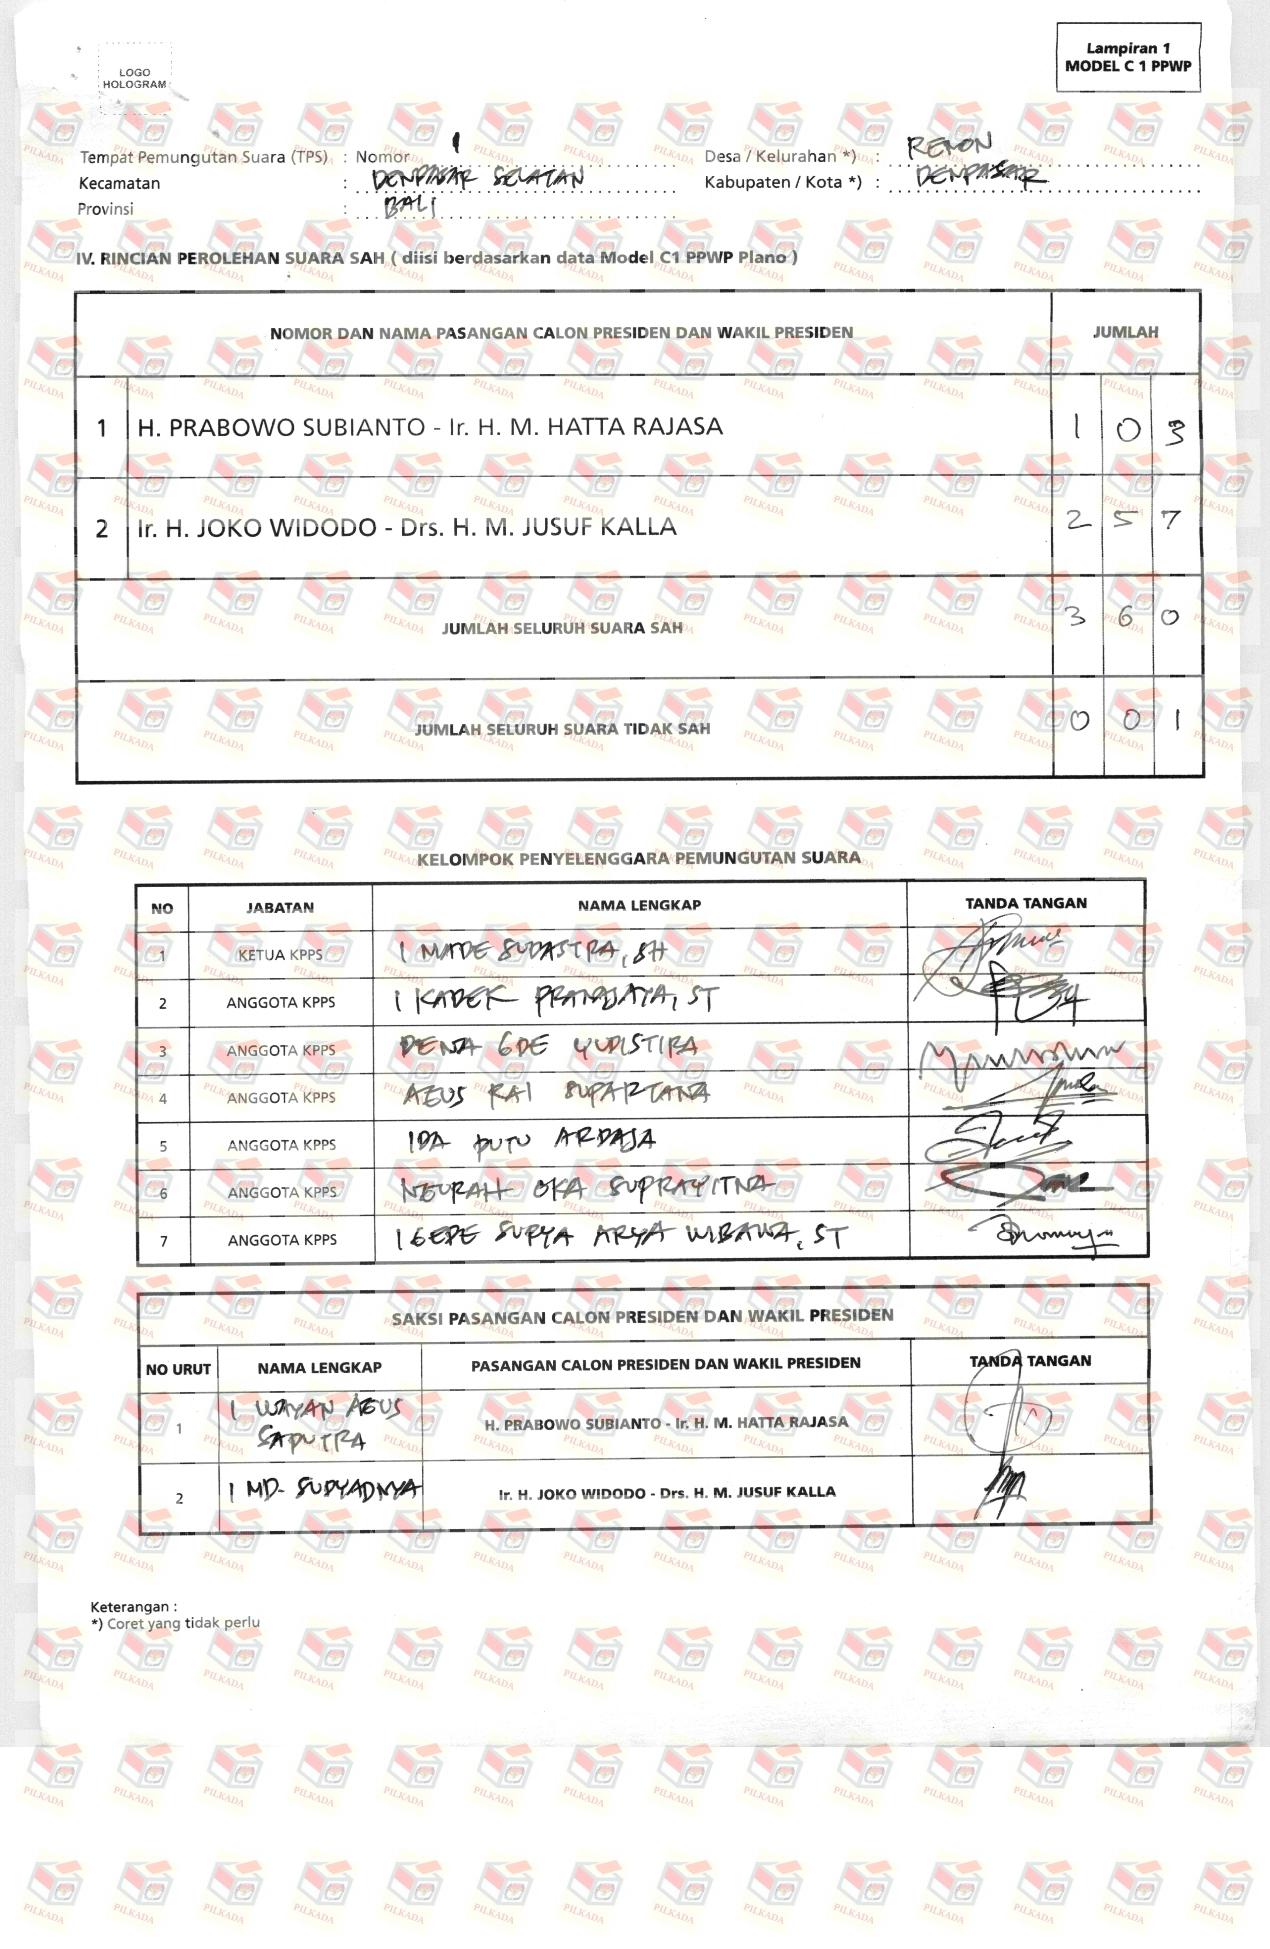 LOGO
HOLOGRAM
Lampiran 1
MODEL C 1 PPWP
Tempat Pemungutan Suara (TPS) : Nomor 1 Desa / Kelurahan *) : RENON
Kecamatan : DENPASAR SELATAN Kabupaten / Kota *) : DENPASAR
Provinsi : BALI
IV. RINCIAN PEROLEHAN SUARA SAH ( diisi berdasarkan data Model C1 PPWP Plano )
NOMOR DAN NAMA PASANGAN CALON PRESIDEN DAN WAKIL PRESIDEN JUMLAH
1 H. PRABOWO SUBIANTO - Ir. H. M. HATTA RAJASA 1 0 3
2 Ir. H. JOKO WIDODO - Drs. H. M. JUSUF KALLA 2 5 7
JUMLAH SELURUH SUARA SAH 3 6 0
JUMLAH SELURUH SUARA TIDAK SAH 0 0 1
KELOMPOK PENYELENGGARA PEMUNGUTAN SUARA
NO JABATAN NAMA LENGKAP TANDA TANGAN
1 KETUA KPPS I MADE SUDASTRA, SH
2 ANGGOTA KPPS I KADEK PRANAJAYA, ST
3 ANGGOTA KPPS DEWA GDE YUDISTIRA
4 ANGGOTA KPPS AGUS RAI SUPARTANA
5 ANGGOTA KPPS IDA PUTU ARDAJA
6 ANGGOTA KPPS NGURAH OKA SUPRAYITNA
7 ANGGOTA KPPS I GEDE SURYA ARYA WIBAWA, ST
SAKSI PASANGAN CALON PRESIDEN DAN WAKIL PRESIDEN
NO URUT NAMA LENGKAP PASANGAN CALON PRESIDEN DAN WAKIL PRESIDEN TANDA TANGAN
1 I WAYAN AGUS SAPUTRA H. PRABOWO SUBIANTO - Ir. H. M. HATTA RAJASA
2 I MD. SUDYADNYA Ir. H. JOKO WIDODO - Drs. H. M. JUSUF KALLA
Keterangan :
*) Coret yang tidak perlu
PILKADA